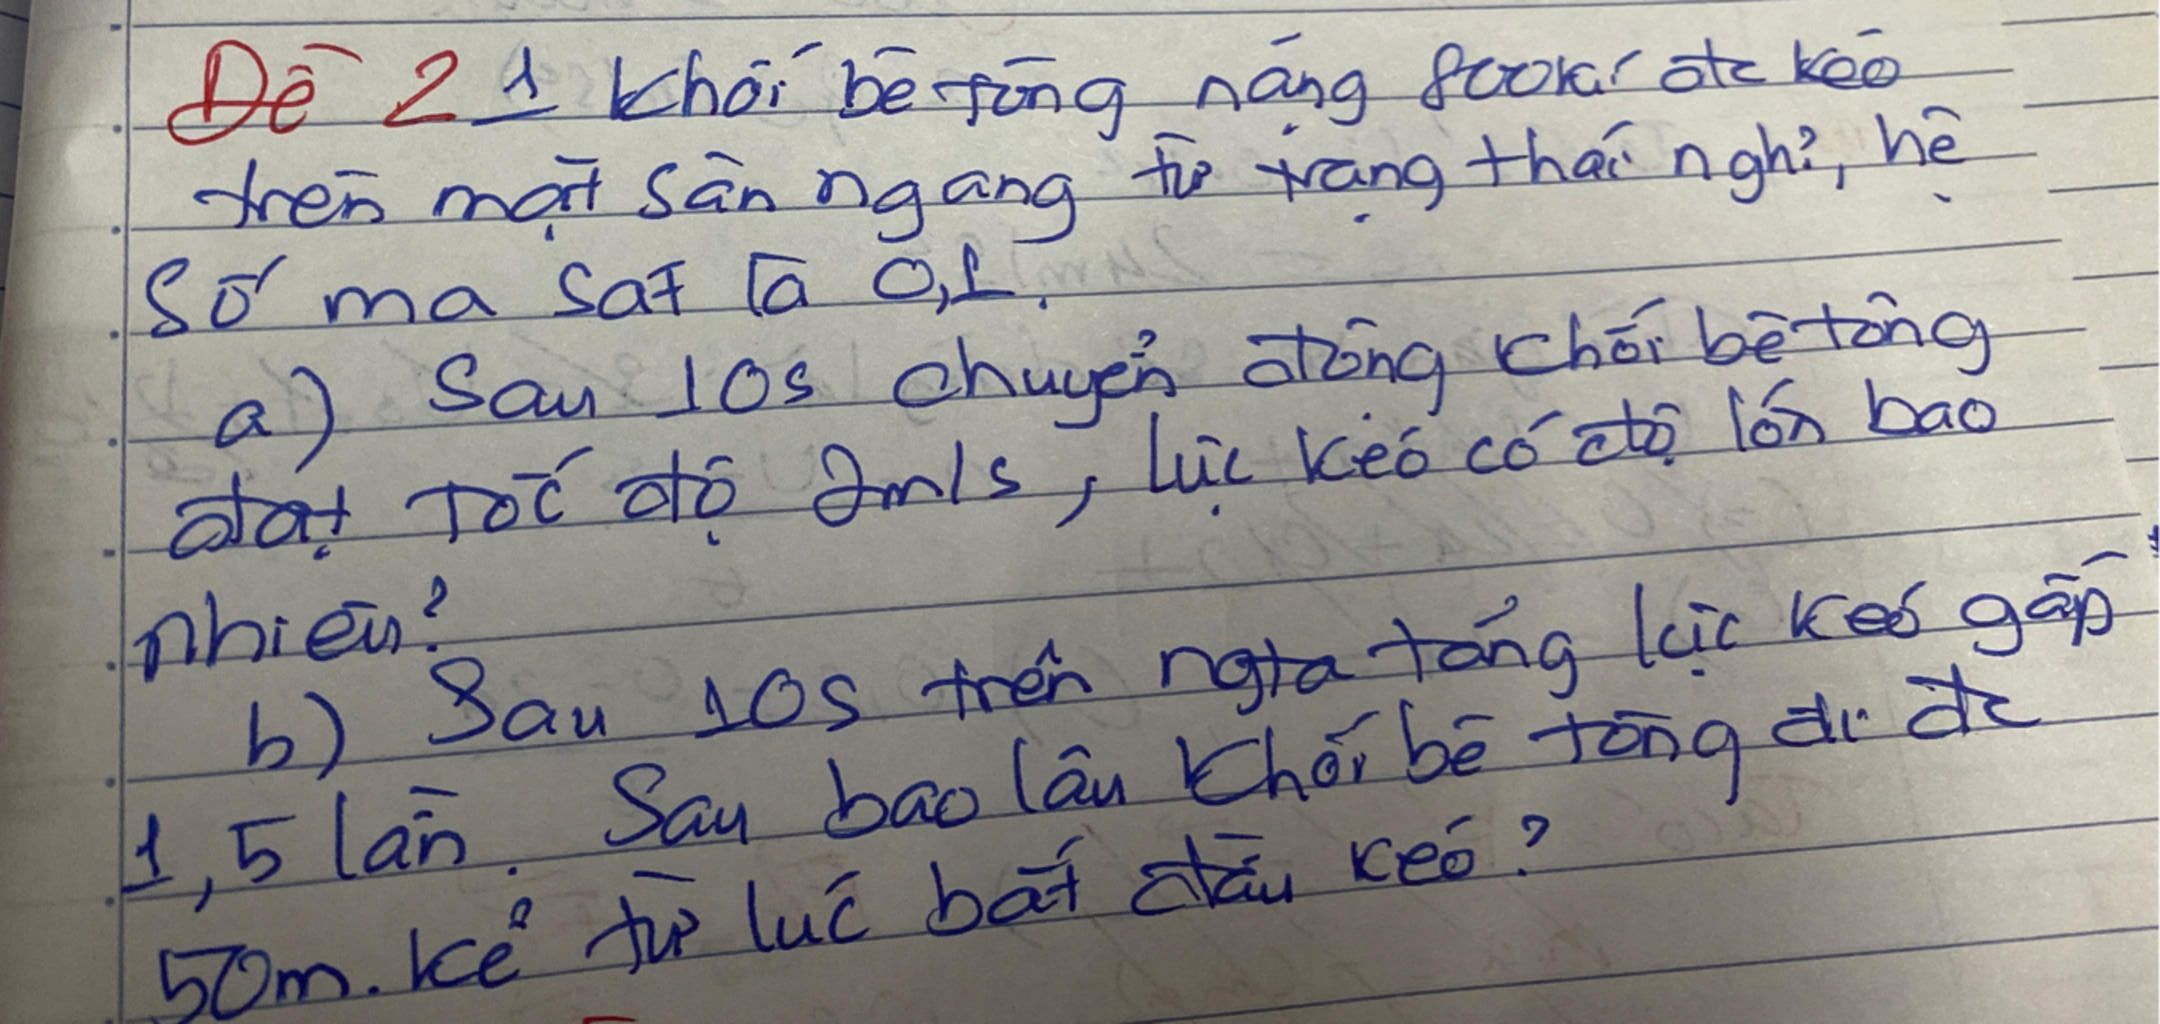 Đề 2 1 khối bê tông nặng 800kg đc kéo
trên mặt sàn ngang từ trạng thái nghỉ, hệ
số ma sát là 0,1.
a) Sau 10s chuyển động khối bê tông
đạt tốc độ 2m/s, lực kéo có độ lớn bao
nhiêu?
b) Sau 10s trên ngta tăng lực kéo gấp
1,5 lần. Sau bao lâu khối bê tông đi đc
50m. kể từ lúc bắt đầu kéo?